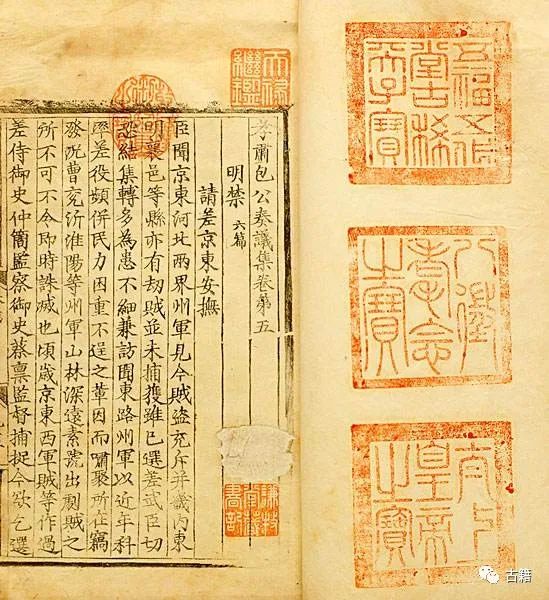 五福五代
堂古稀
天子寶
八徵
耄念
之寶
太上
皇帝
之寶
天祿
繼鑑
孝肅包公奏議集卷第五
明禁 六篇
請差京東安撫
臣聞京東河北兩界州軍見今賊盜充斥并畿內東
明襄邑等縣亦有劫賊並未捕獲雖已選差武臣切
恐結集轉多為患不細兼訪聞東路州軍以近年科
率差役頻併民力困重不逞之輩因而嘯聚所在竊
發況曹兗沂淮陽等州軍山林深遠素號出劇賊之
所不可不令即時誅滅也頃歲京東西軍賊等作過
差侍御史仲簡監察御史蔡稟監督捕捉今欲乞選
謙牧
堂藏
書記
古籍